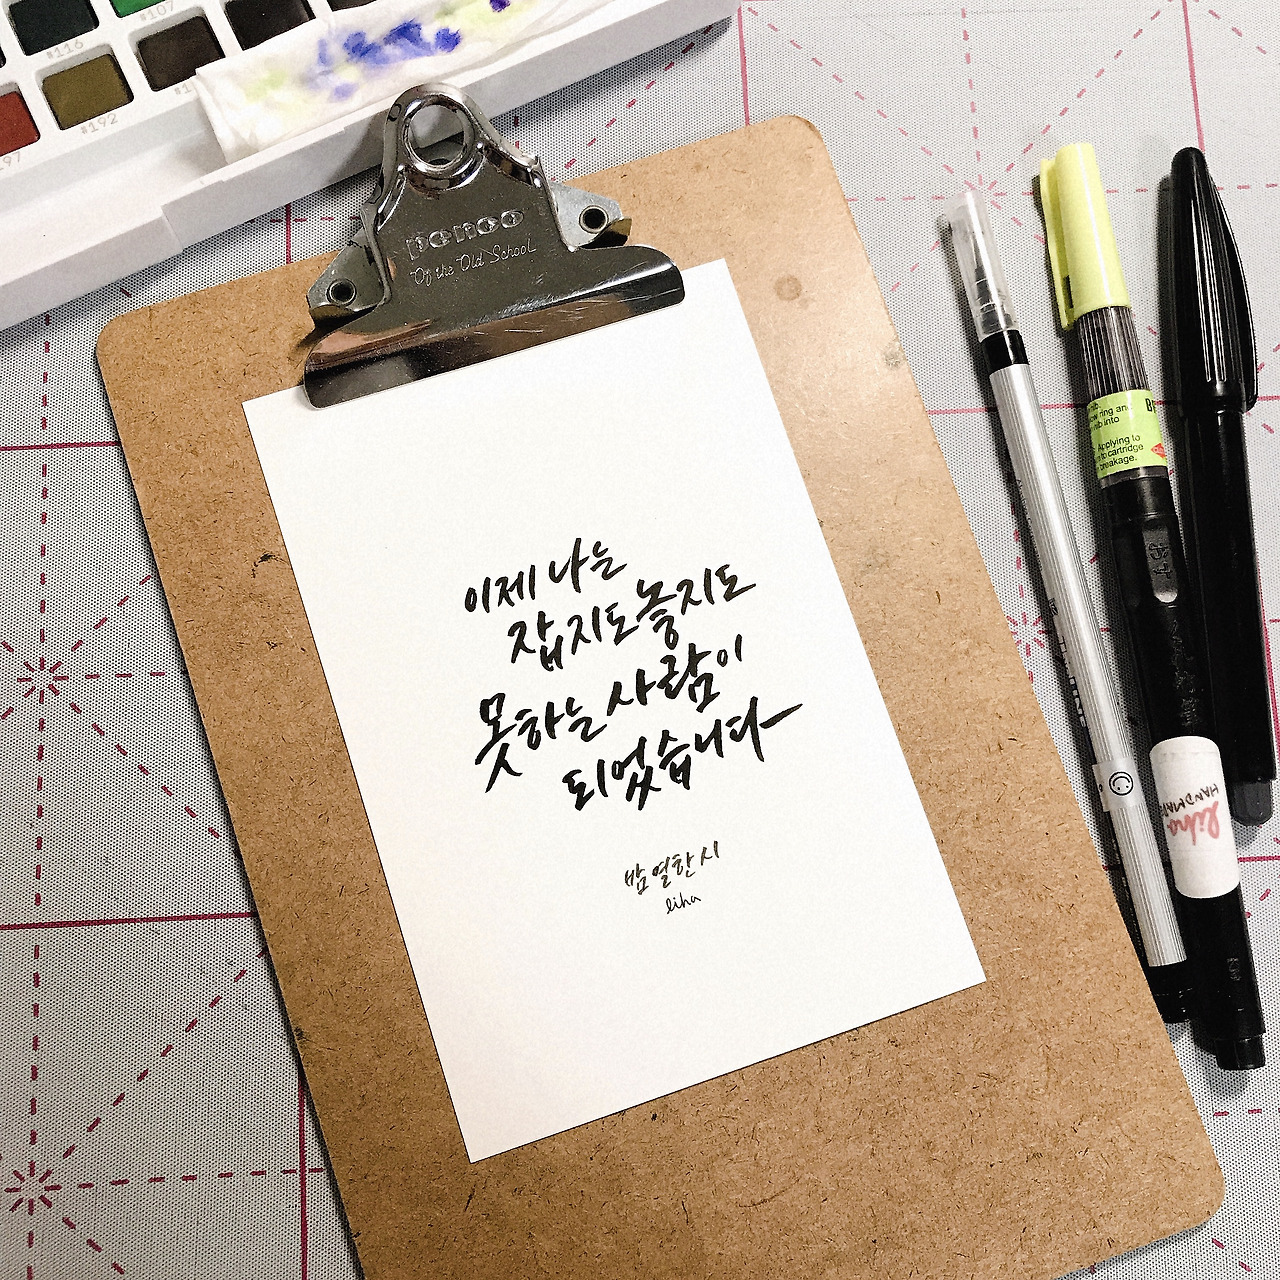 #116
#107
#192
97
penco
Of the Old School
이제 나는
잡지도 놓지도
못하는 사람이
되었습니다
밤 열한 시
liha
Applying to
to cartridge
breakage.
liha
HANDMADE